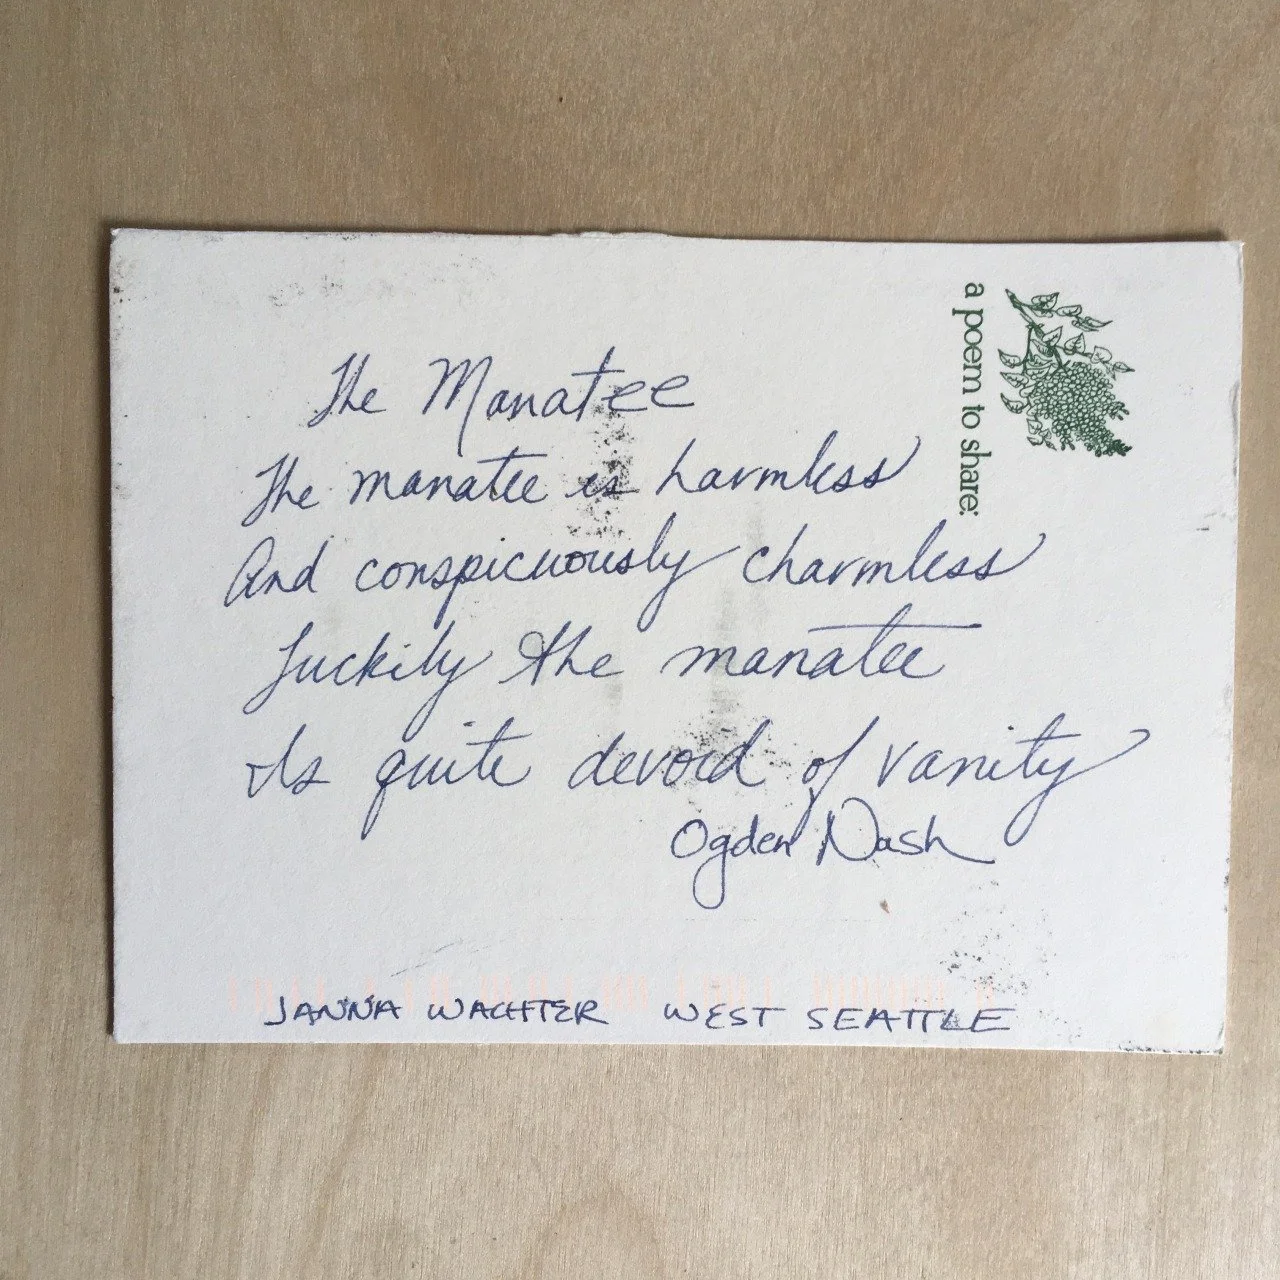 a poem to share:
The Manatee
The manatee is harmless
And conspicuously charmless
Luckily the manatee
Is quite devoid of vanity
Ogden Nash
JANNA WACHTER WEST SEATTLE